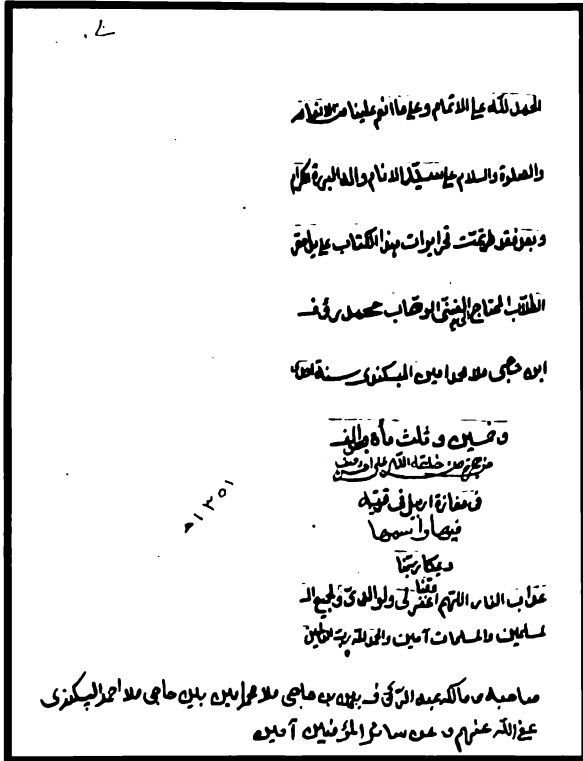 الحمد لله على الاتمام وعلى ما انعم علينا من الانعام
والصلوة والسلام على سيد الانام واله البررة الكرام
وبعد فقد تمت تحريرات هذا الكتاب على يد احقر
الطلاب المحتاج الى الغنى الوهاب محمد رؤف
ابن حجى ملا محمد امين البسكندى سنة احدى
وخمسين وثلث مأة والف
من هجرة من خلقه الله على
فى مفازة اربل فى قرية
فيها واسمها
ديكا ربنا
وقنا
عذاب النار اللهم اغفر لى ولوالدى ولجميع الـ
مسلمين والمسلمات آمين والحمد لله رب العالمين
١٣٥١هـ
صاحبه ومالكه عبد الرؤف بن حاجى ملا محمد امين بن حاجى ملا احمد البسكندى
عفى الله عنهم وعن سائر المؤمنين آمين